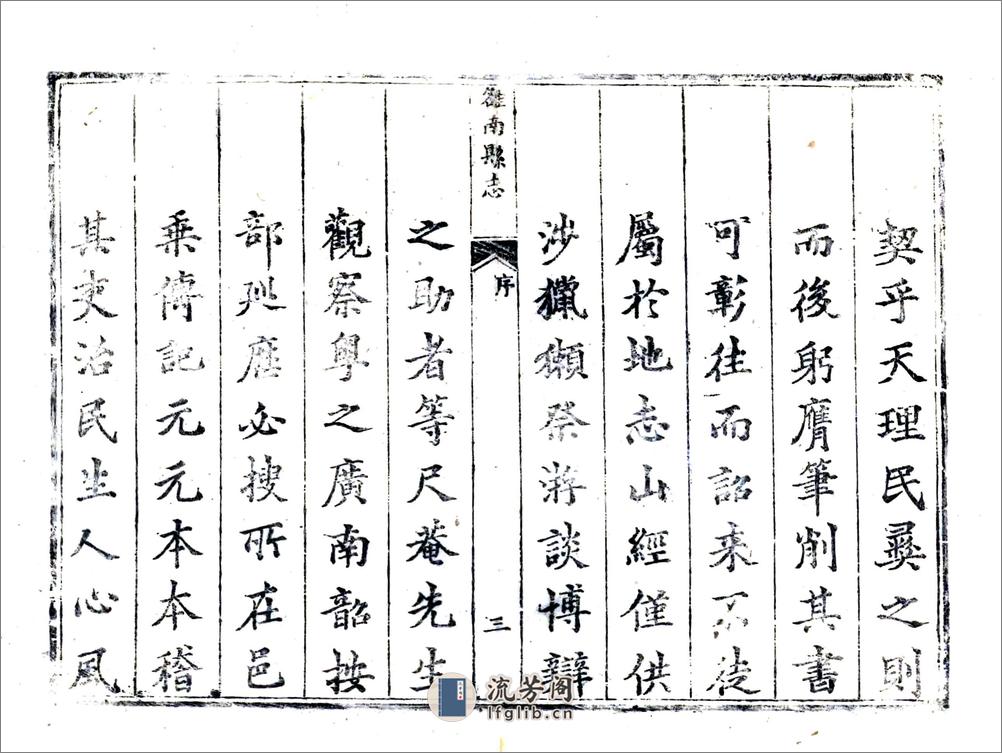 契乎天理民彝之則
而後躬膺筆削其書
可彰往而詔來不徒
屬於地志山經僅供
涉獵獺祭游談博辯
雒南縣志
序
三
之助者等尺菴先生
觀察粵之廣南韶按
部廵歷必搜所在邑
乘傳記元元本本稽
其吏治民生人心風
流芳阁
lfglib.cn